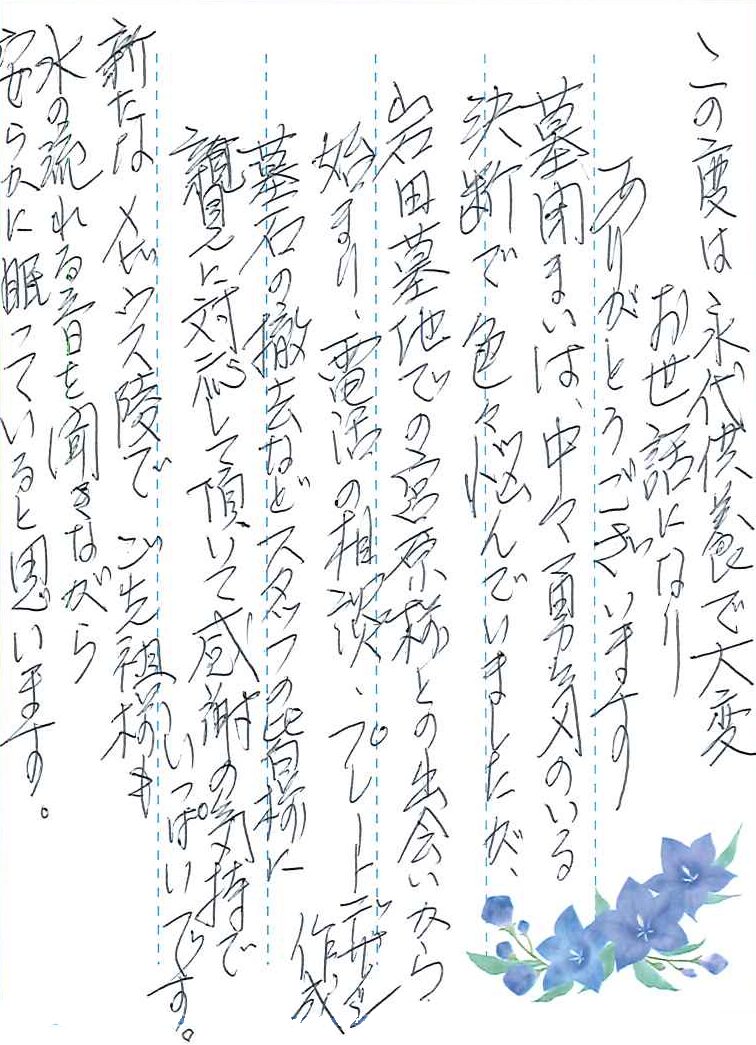 この度は永代供養で大変
お世話になり
ありがとうございます。
墓閉まいは、中々勇気のいる
決断で色々悩んでいましたが、
岩田墓地での宮原様との出会いから
始まり、電話の相談、プレートデザイン作成
墓石の撤去などスタッフの皆様に
親見に対応して頂いて感謝の気持で
いっぱいです。
新たなメビウス陵でご先祖様も
水の流れる音を聞きながら
安らかに眠っていると思います。